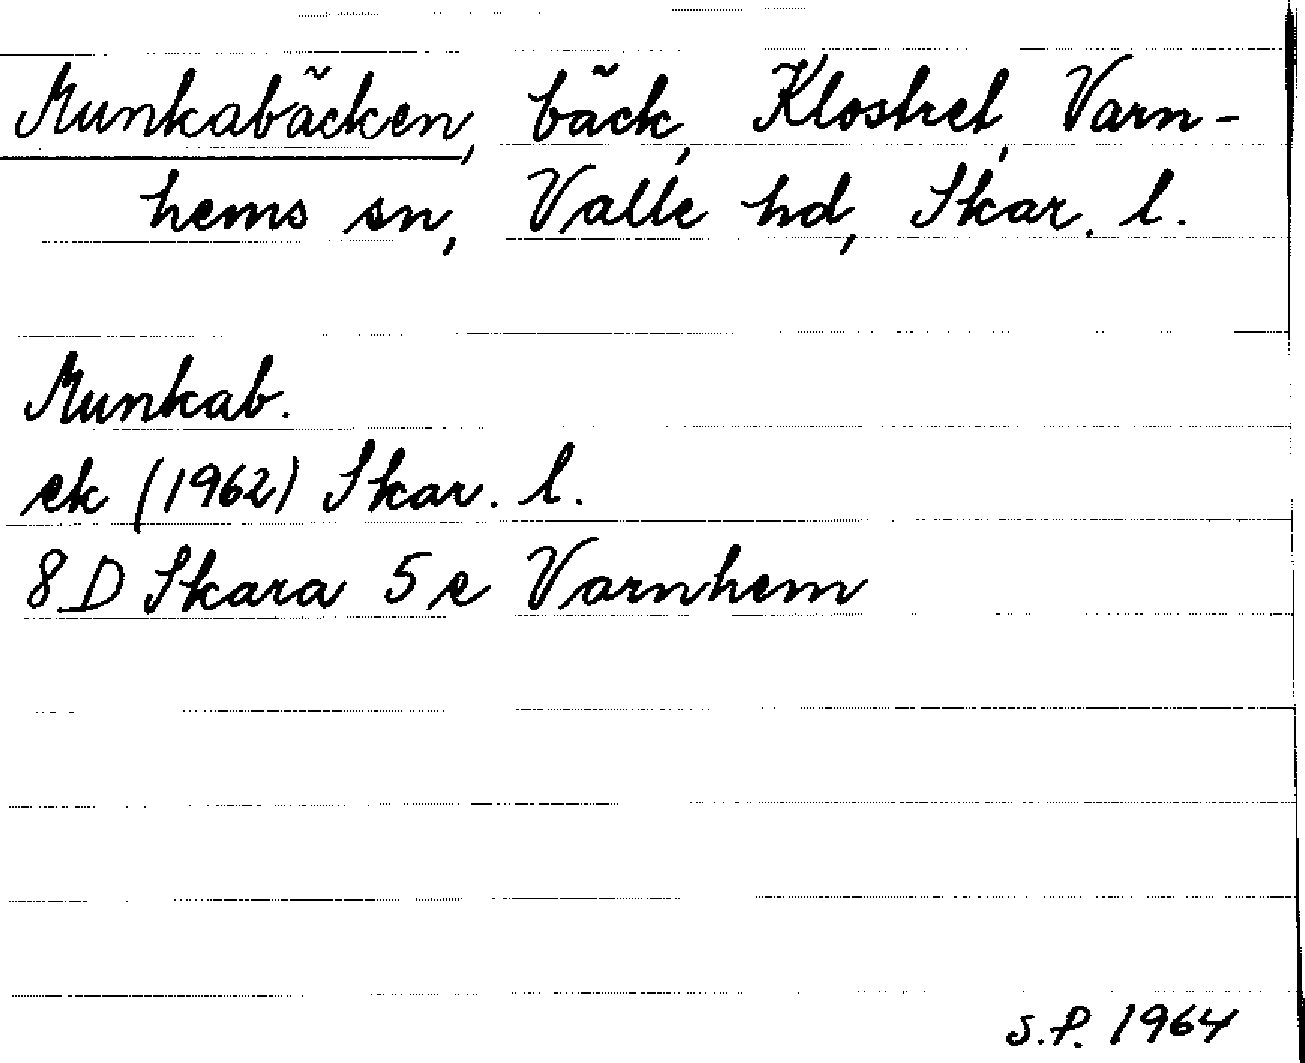 Munkabäcken, bäck, Klostret, Varn-
hems sn, Valle hd, Skar. l.
Munkab.
ek (1962) Skar. l.
8D Skara 5e Varnhem
S.P. 1964